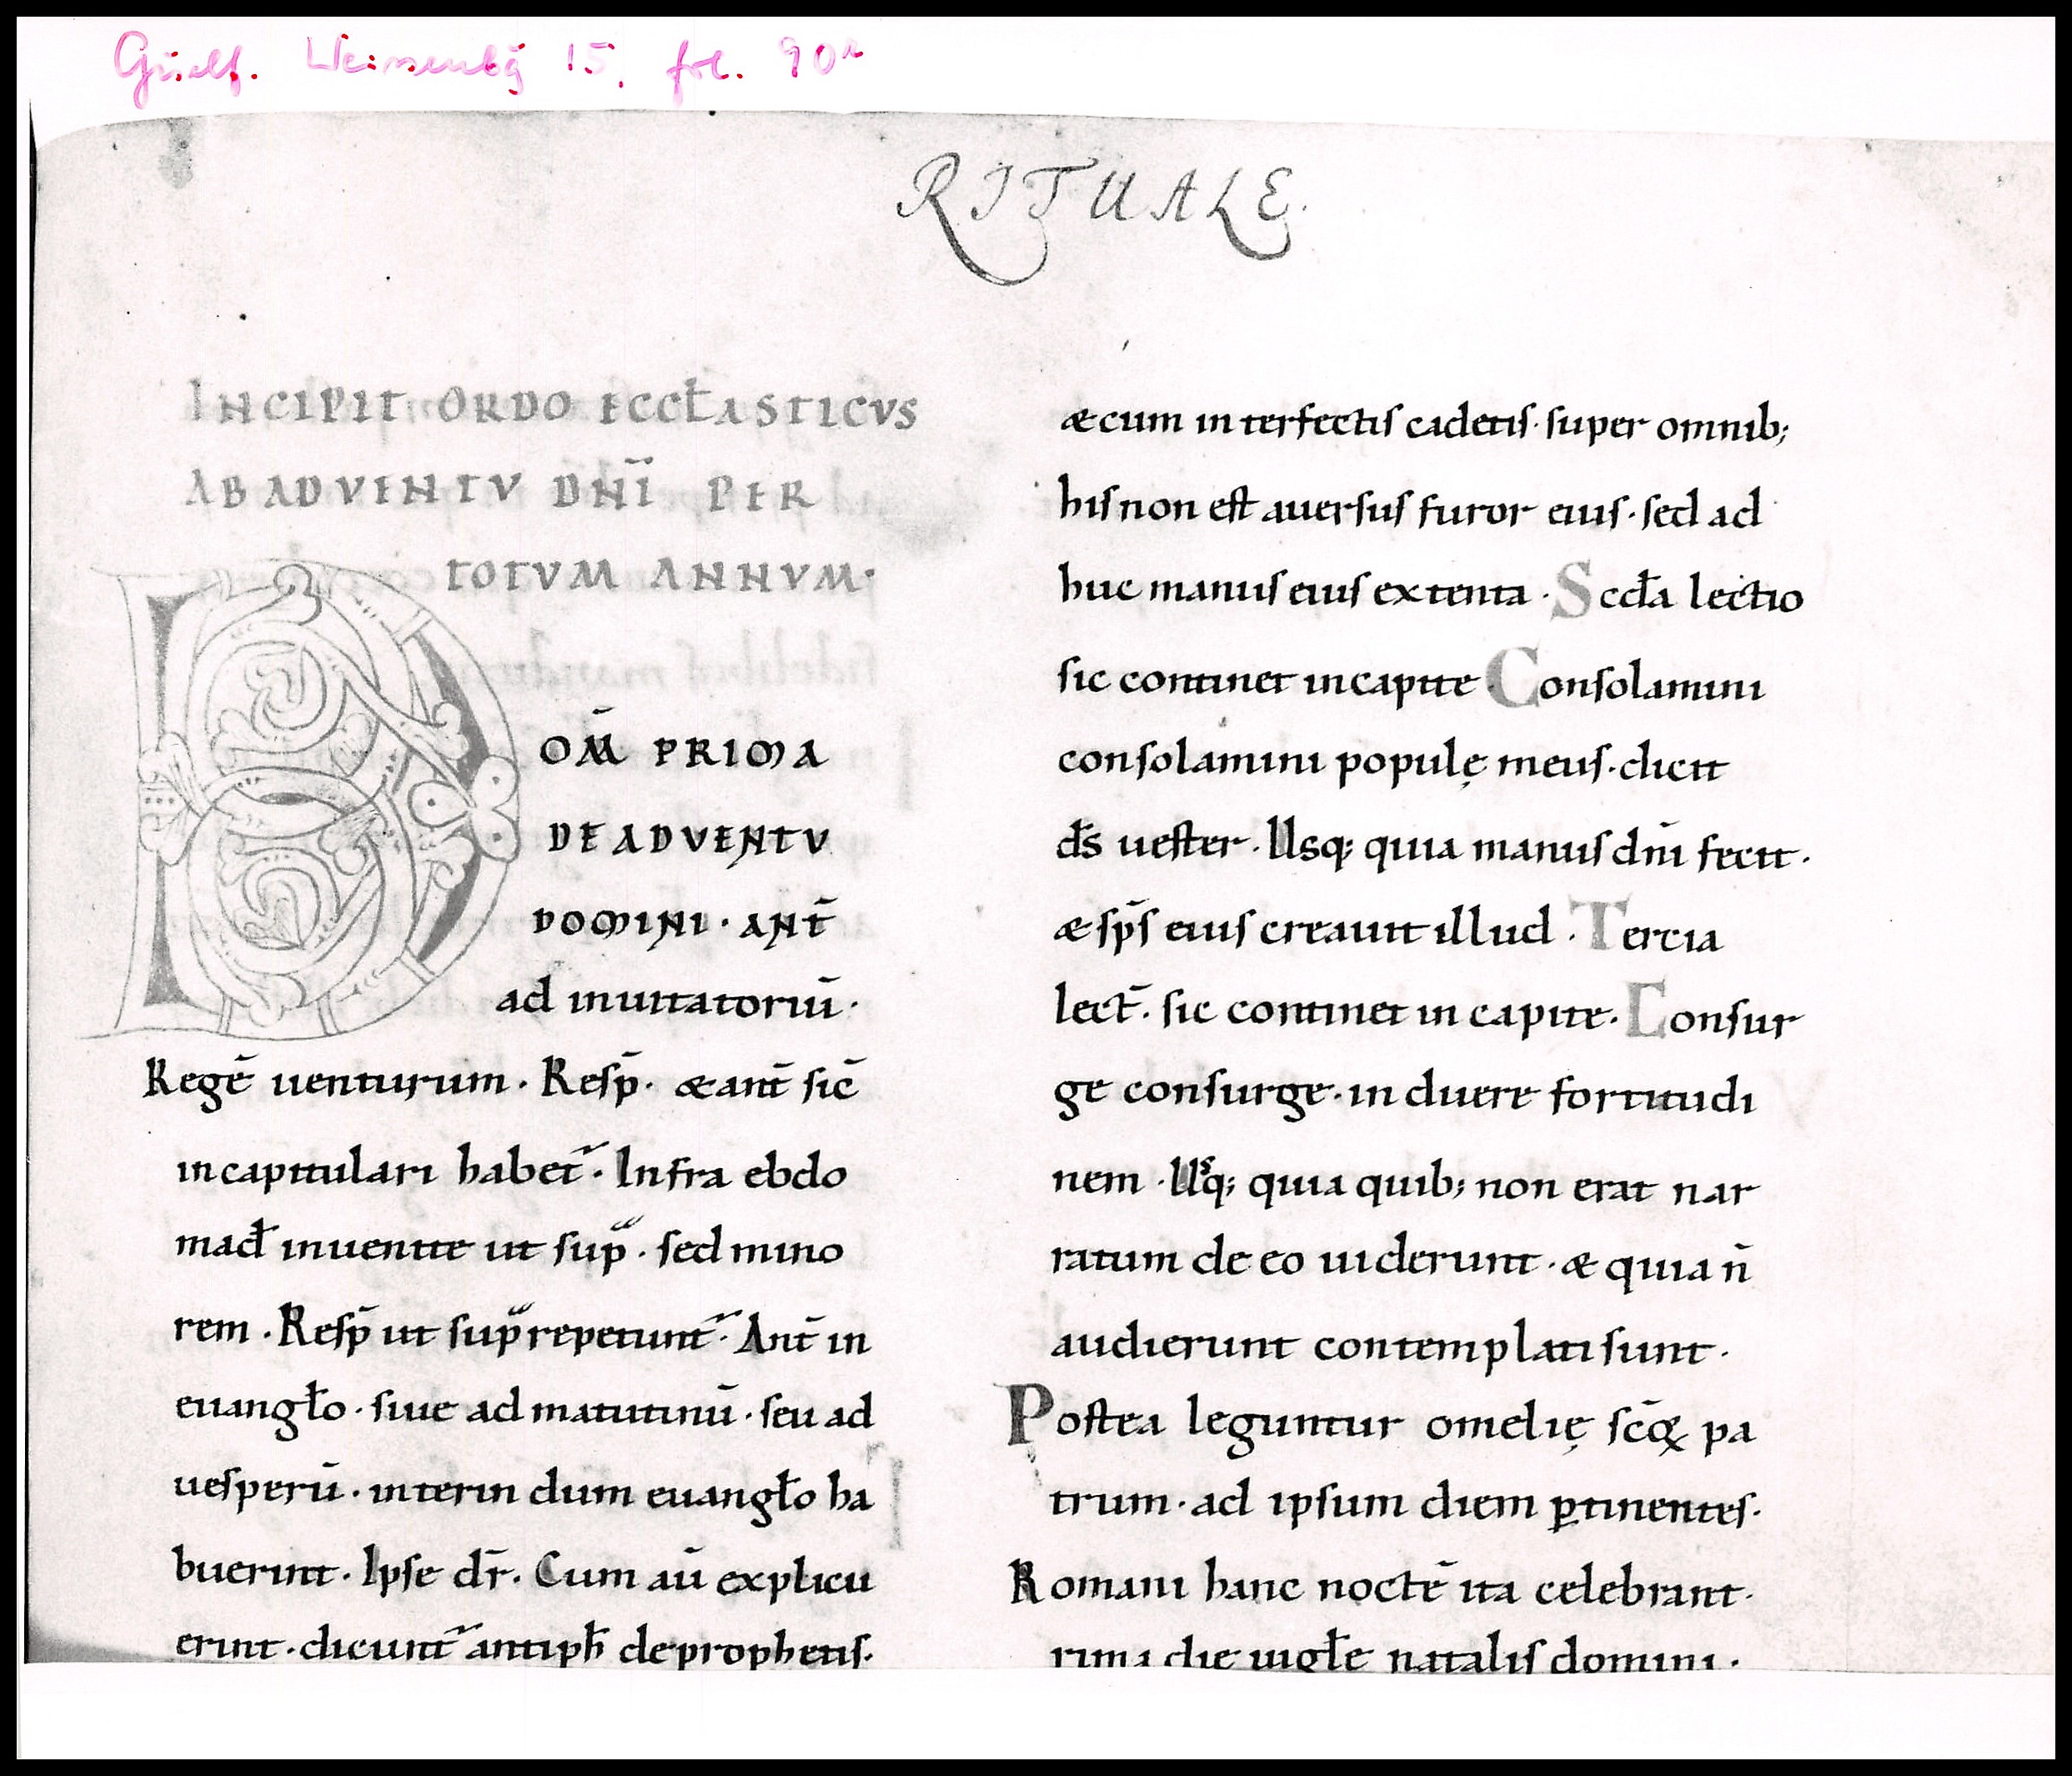 Guelf. Weissenbg 15, fol. 90r
RITUALE.
INCIPIT ORDO ECCƚASTICVS
AB ADVENTV DN̄I PER
TOTVM ANNVM·
DOM̄ PRIMA
DE ADVENTV
DOMINI · ANT̄
ad inuitatoriū·
Regē uenturum · Resp̄ · & ant̄ sic̄
in capitulari habet᷑ · Infra ebdo
mađ inuenite ut sup̄ · sed mino
rem · Resp̄ ut sup̄ repetunt᷑ · Ant̄ in
euangƚo · siue ad matutinū · seu ad
uesperū · interin dum euangƚo ha
buerint · Ipse dr̄ · Cum aū explicu
erint · dicunt᷑ antiph̄ de prophetis·
& cum interfectis cadetis · super omnib;
his non est auersus furor eius · sed ad
huc manus eius extenta · Scđa lectio
sic continet in capite · Consolamini
consolamini populę meus · dicit
d̄s uester · Usq; quia manus dn̄i fecit ·
& sp̄s eius creauit illud · Tercia
lect̄ · sic continet in capite · Consur
ge consurge · induere fortitudi
nem · Usq; quia quib; non erat nar
ratum de eo uiderunt · & quia n̄
audierunt contemplati sunt ·
Postea leguntur omelię sc̄oꝝ pa
trum · ad ipsum diem ꝑtinentes·
Romani hanc noctē ita celebrant·
rima die uigƚe natalis domini ·